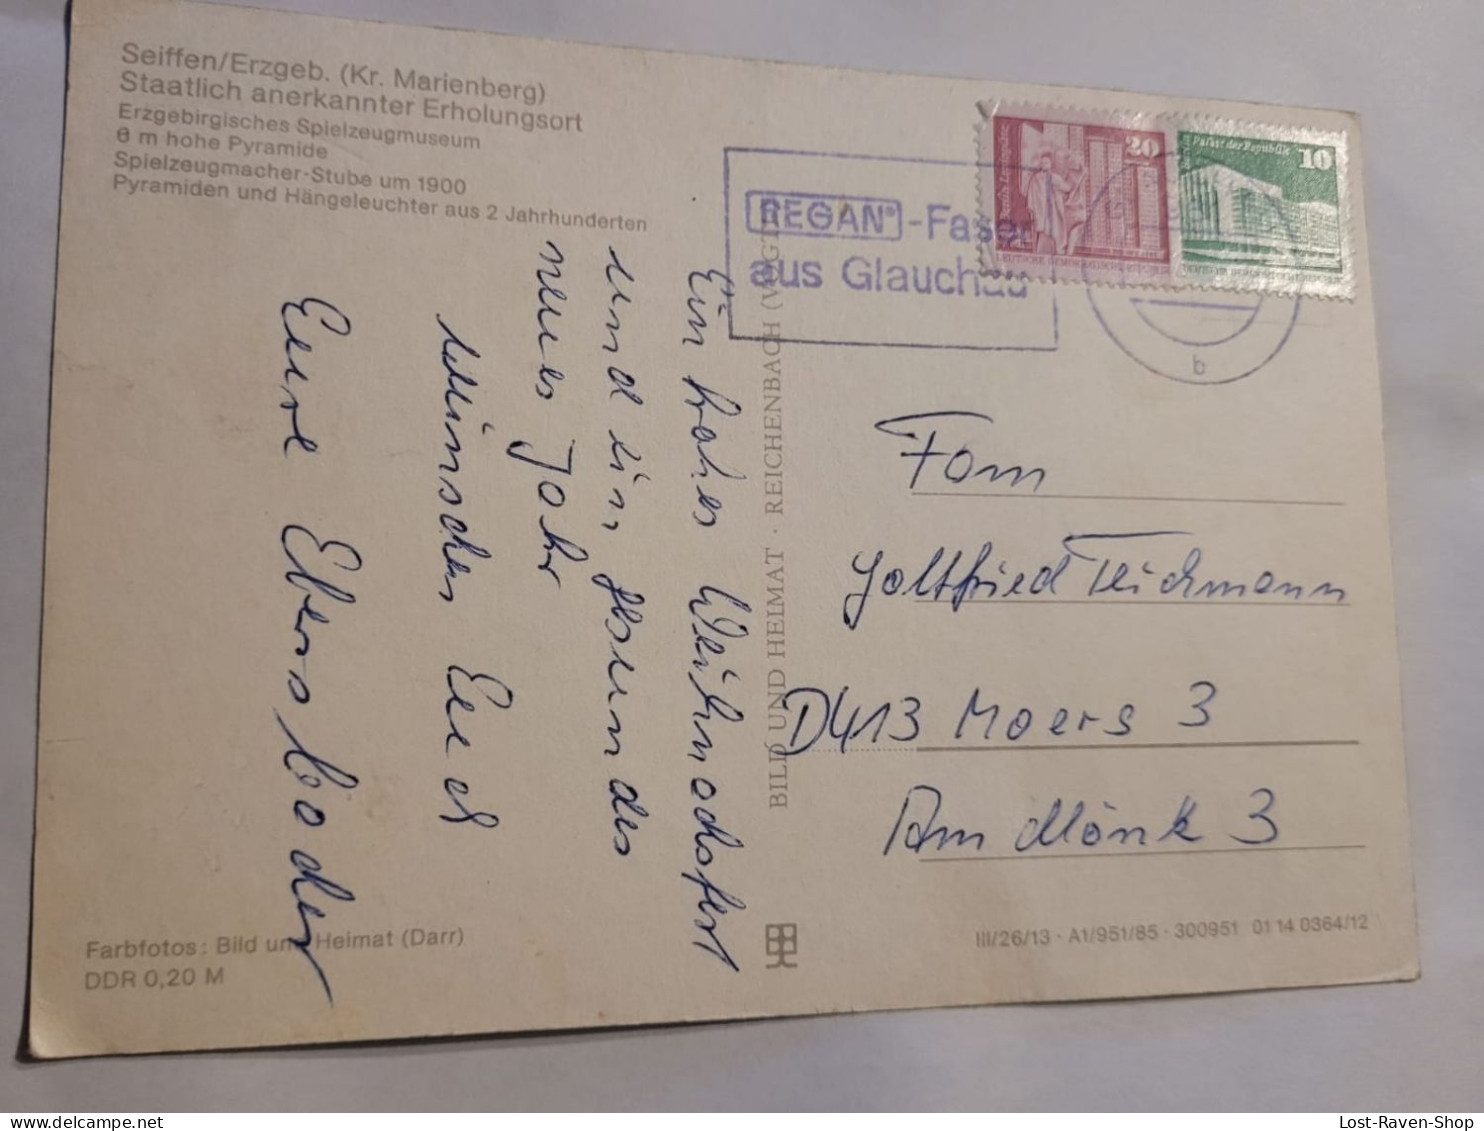 Seiffen/Erzgeb. (Kr. Marienberg)
Staatlich anerkannter Erholungsort
Erzgebirgisches Spielzeugmuseum
6 m hohe Pyramide
Spielzeugmacher-Stube um 1900
Pyramiden und Hängeleuchter aus 2 Jahrhunderten
Ein frohes Weihnachtsfest
und ein gesundes
neues Jahr
wünschen Euch
Eure Ebersbacher
BILD UND HEIMAT · REICHENBACH (VOGTL)
REGAN® -Faser
aus Glauchau
20
DEUTSCHE DEMOKRATISCHE REPUBLIK
Palast der Republik
10
DEUTSCHE DEMOKRATISCHE REPUBLIK
b
Fam
Gottfried Teichmann
D413 Moers 3
Am Mönk 3
Farbfotos: Bild und Heimat (Darr)
DDR 0,20 M
III/26/13 · A1/951/85 · 300951 01 14 0364/12
Lost-Raven-Shop